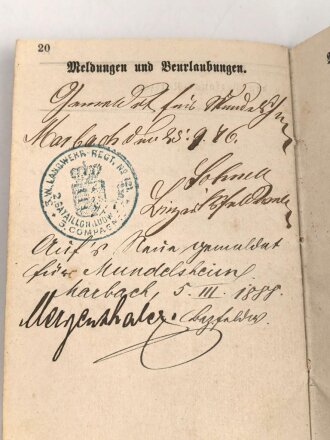 20
Meldungen und Beurlaubungen.
Gemeldet für Mundelshm
Marbach den 25. 9. 86.
K.W. LANDWEHR REGT. No 121.
2. BATAILLON LUDW
5. COMPAGNIE
Auf's Neue gemeldet
für Mundelsheim
Marbach, 5. III. 1888
Mergenthaler. Bezfeldw.